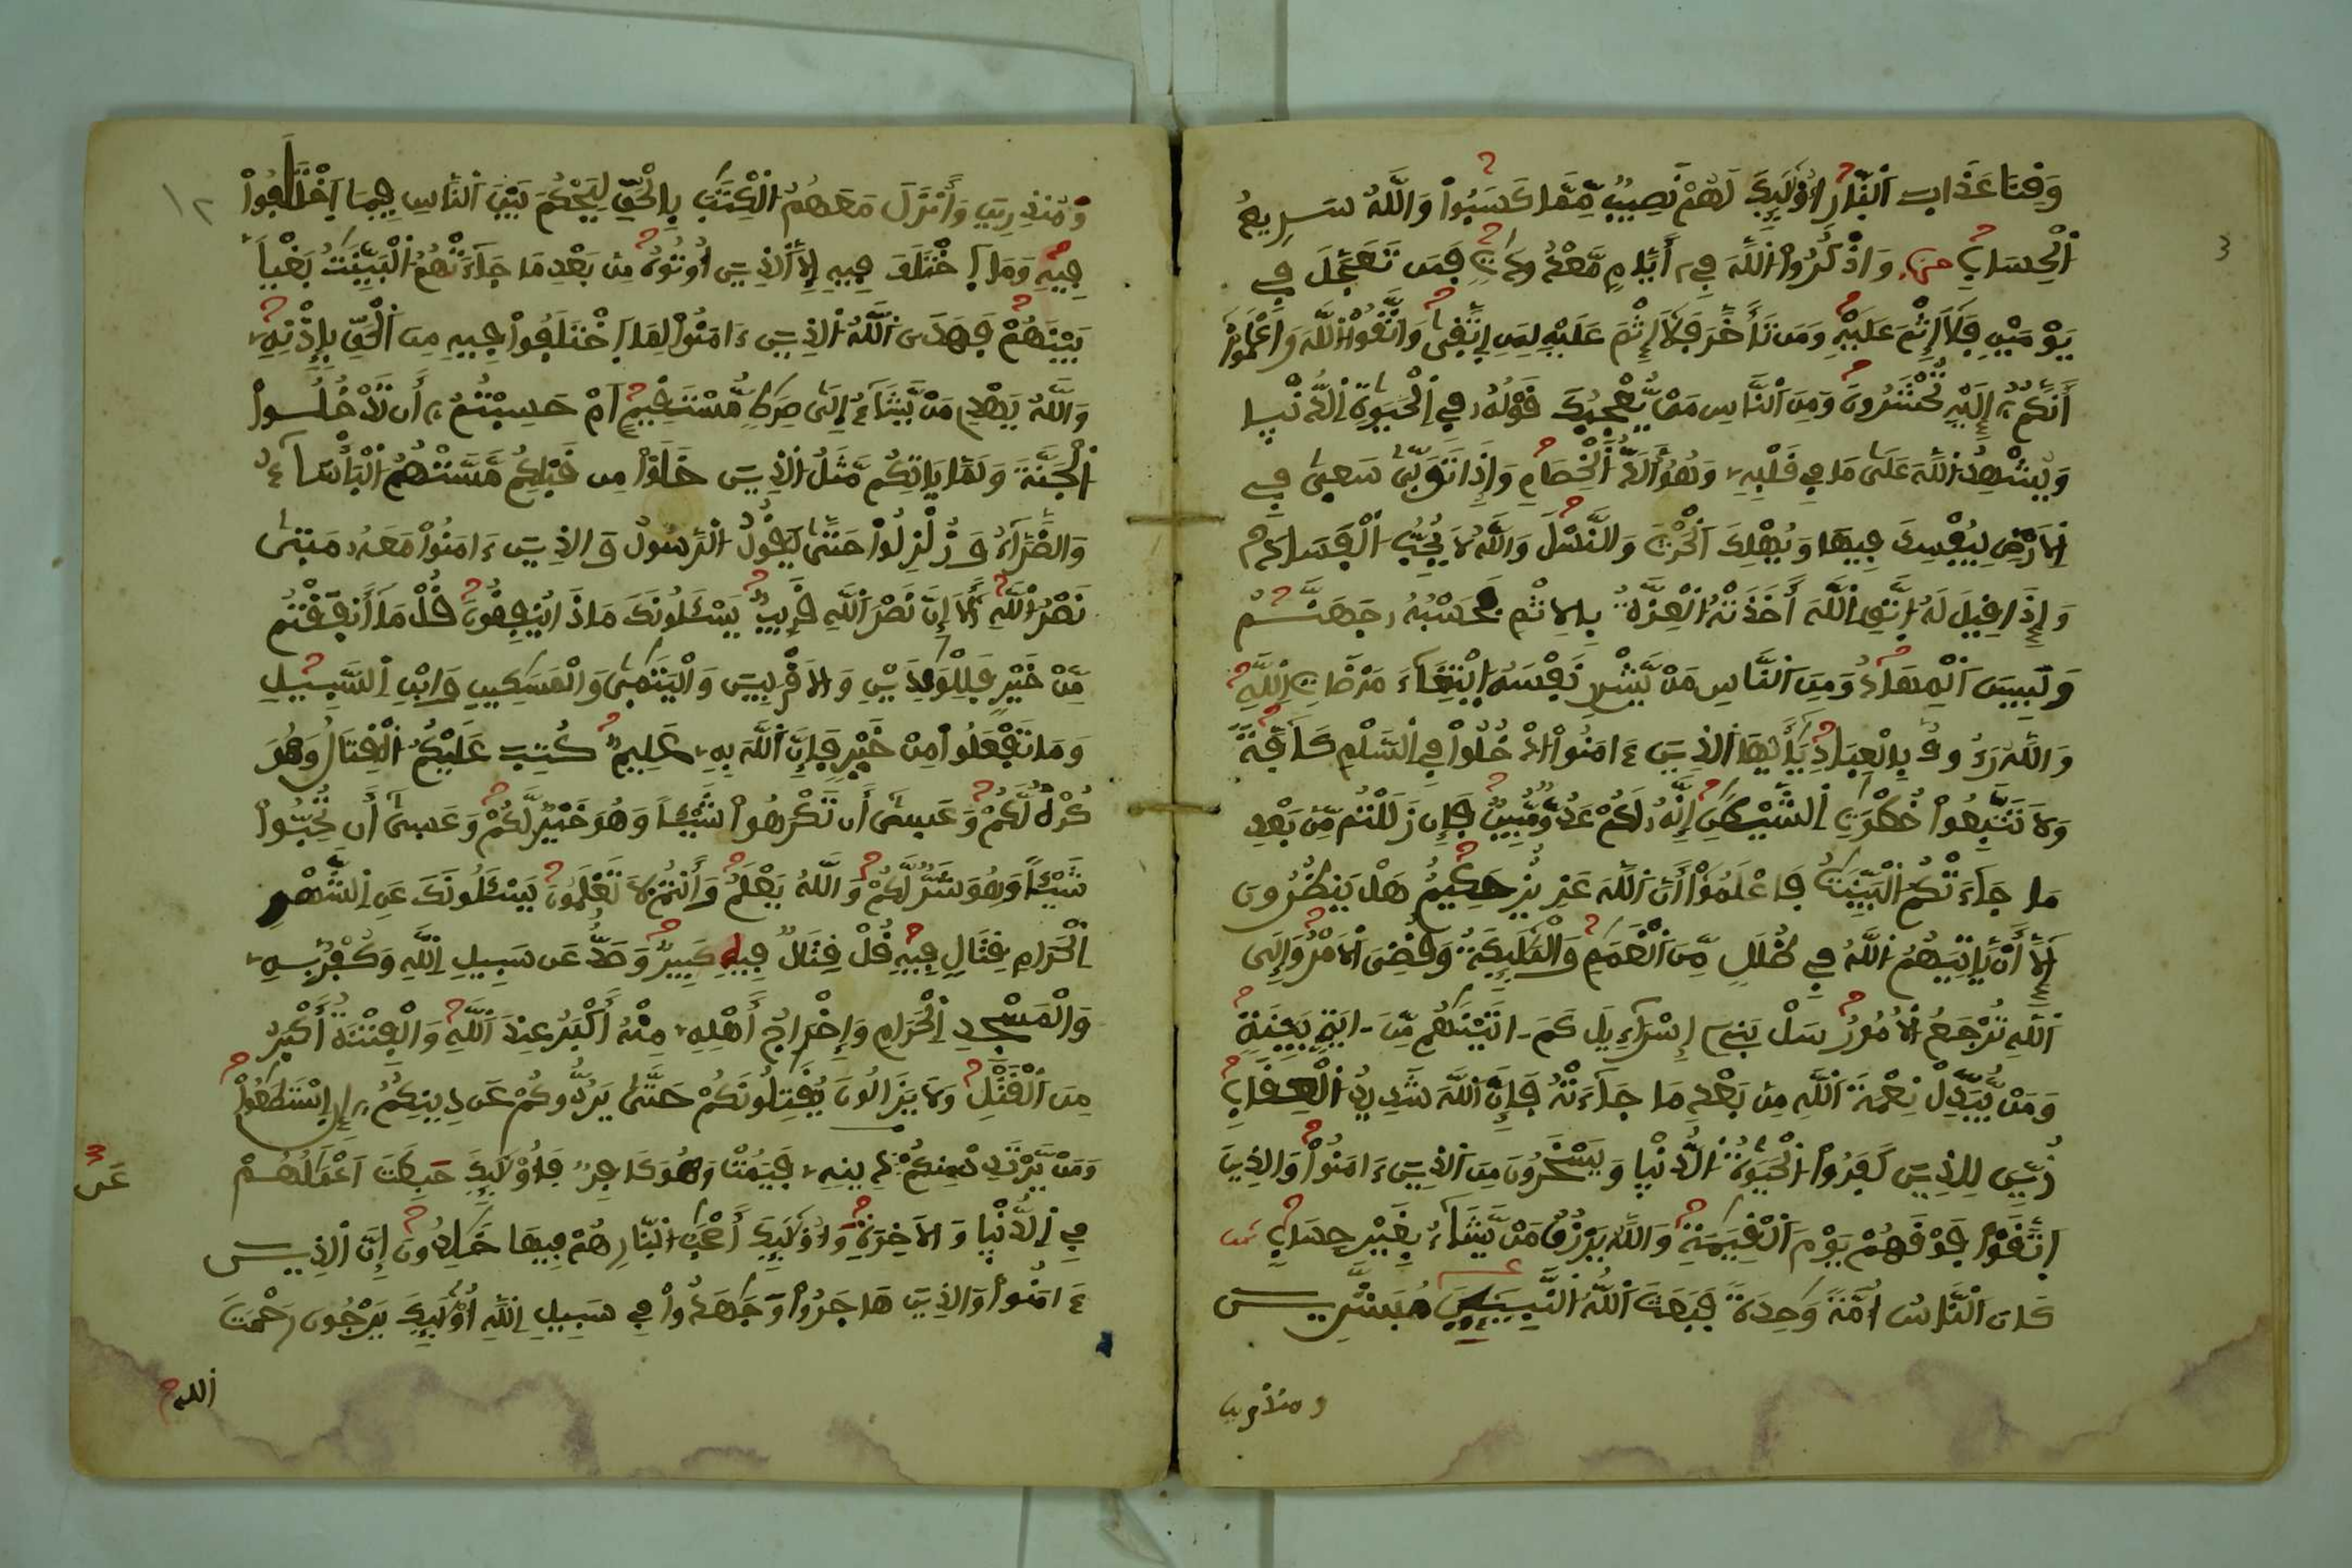 وَقِنَا عَذَابَ اَ۬لنّ۪ارِ أُوْلَٰٓئِكَ لَهُمْ نَصِيبٞ مِّمَّا كَسَبُواْ وَاللَّهُ سَرِيعُ
اُ۬لْحِسَابِ حزب وَاذْكُرُواْ اُ۬للَّهَ فِےٓ أَيَّامٖ مَّعْدُودَٰتٖ فَمَن تَعَجَّلَ فِے
يَوْمَيْنِ فَلَآ إِثْمَ عَلَيْهِ وَمَن تَأَخَّرَ فَلَآ إِثْمَ عَلَيْهِ لِمَنِ اِ۪تَّق۪ىٰ وَاتَّقُواْ اُ۬للَّهَ وَاعْلَمُوٓاْ
أَنَّكُمُۥٓ إِلَيْهِ تُحْشَرُونَ وَمِنَ اَ۬لنَّاسِ مَنْ يُّعْجِبُكَ قَوْلُهُۥ فِے اِ۬لْحَيَوٰةِ اِ۬لدُّنْي۪ا
وَيُشْهِدُ اُ۬للَّهَ عَلَىٰ مَا فِے قَلْبِهِۦ وَهُوَ أَلَدُّ اُ۬لْخِصَامِ وَإِذَا تَوَلّ۪ىٰ سَع۪ىٰ فِے
اِ۬لَارْضِ لِيُفْسِدَ فِيهَا وَيُهْلِكَ اَ۬لْحَرْثَ وَالنَّسْلَ وَاللَّهُ لَا يُحِبُّ اُ۬لْفَسَادَ
وَإِذَا قِيلَ لَهُ اُ۪تَّقِ اِ۬للَّهَ أَخَذَتْهُ اُ۬لْعِزَّةُ بِالِاثْمِ فَحَسْبُهُۥ جَهَنَّمُ
وَلَبِيسَ اَ۬لْمِهَادُ وَمِنَ اَ۬لنَّاسِ مَنْ يَّشْرِے نَفْسَهُ اُ۪بْتِغَآءَ مَرْضَاتِ اِ۬للَّهِ
وَاللَّهُ رَءُوفُۢ بِالْعِبَادِ يَٰٓأَيُّهَا اَ۬لذِينَ ءَامَنُواْ اُ۟دْخُلُواْ فِے اِ۬لسَّلْمِ كَآفَّةٗ
وَلَا تَتَّبِعُواْ خُطْوَٰتِ اِ۬لشَّيْطَٰنِ إِنَّهُۥ لَكُمْ عَدُوّٞ مُّبِينٞ فَإِن زَلَلْتُم مِّنۢ بَعْدِ
مَا جَآءَتْكُمُ اُ۬لْبَيِّنَٰتُ فَاعْلَمُوٓاْ أَنَّ اَ۬للَّهَ عَزِيزٌ حَكِيمٌ هَلْ يَنظُرُونَ
إِلَّآ أَنْ يَّاتِيَهُمُ اُ۬للَّهُ فِے ظُلَلٖ مِّنَ اَ۬لْغَمَٰمِ وَالْمَلَٰٓئِكَةُ وَقُضِيَ اَ۬لَامْرُ وَإِلَى
اَ۬للَّهِ تُرْجَعُ اُ۬لُامُورُ سَلْ بَنِےٓ إِسْرَآءِيلَ كَمَ اٰتَيْنَٰهُم مِّنَ اٰيَةِۢ بَيِّنَةٖ
وَمَنْ يُّبَدِّلْ نِعْمَةَ اَ۬للَّهِ مِنۢ بَعْدِ مَا جَآءَتْهُ فَإِنَّ اَ۬للَّهَ شَدِيدُ اُ۬لْعِقَابِ
زُيِّنَ لِلذِينَ كَفَرُواْ اُ۬لْحَيَوٰةُ اُ۬لدُّنْي۪ا وَيَسْخَرُونَ مِنَ اَ۬لذِينَ ءَامَنُواْ وَالذِينَ
اَ۪تَّقَوْاْ فَوْقَهُمْ يَوْمَ اَ۬لْقِيَٰمَةِ وَاللَّهُ يَرْزُقُ مَنْ يَّشَآءُ بِغَيْرِ حِسَابٖ ثمن
كَانَ اَ۬لنَّاسُ أُمَّةٗ وَٰحِدَةٗ فَبَعَثَ اَ۬للَّهُ اُ۬لنَّبِيٓـِٕۧنَ مُبَشِّرِينَ
ومنذرين
١٢
وَمُنذِرِينَ وَأَنزَلَ مَعَهُمُ اُ۬لْكِتَٰبَ بِالْحَقِّ لِيَحْكُمَ بَيْنَ اَ۬لنَّاسِ فِيمَا اَ۪خْتَلَفُواْ
فِيهِ وَمَا اَ۪خْتَلَفَ فِيهِ إِلَّا اَ۬لذِينَ أُوتُوهُ مِنۢ بَعْدِ مَا جَآءَتْهُمُ اُ۬لْبَيِّنَٰتُ بَغْياَۢ
بَيْنَهُمْ فَهَدَى اَ۬للَّهُ اُ۬لذِينَ ءَامَنُواْ لِمَا اَ۪خْتَلَفُواْ فِيهِ مِنَ اَ۬لْحَقِّ بِإِذْنِهِۦ
وَاللَّهُ يَهْدِے مَنْ يَّشَآءُ اِ۪لَىٰ صِرَٰطٖ مُّسْتَقِيمٍ اَمْ حَسِبْتُمُۥٓ أَن تَدْخُلُواْ
اُ۬لْجَنَّةَ وَلَمَّا يَاتِكُم مَّثَلُ اُ۬لذِينَ خَلَوْاْ مِن قَبْلِكُم مَّسَّتْهُمُ اُ۬لْبَأْسَآءُ
وَالضَّرَّآءُ وَزُلْزِلُواْ حَتَّىٰ يَقُولُ اُ۬لرَّسُولُ وَالذِينَ ءَامَنُواْ مَعَهُۥ مَت۪ىٰ
نَصْرُ اُ۬للَّهِ أَلَآ إِنَّ نَصْرَ اَ۬للَّهِ قَرِيبٞ يَسْـَٔلُونَكَ مَاذَا يُنفِقُونَ قُلْ مَآ أَنفَقْتُم
مِّنْ خَيْرٖ فَلِلْوَٰلِدَيْنِ وَالَاقْرَبِينَ وَالْيَتَٰم۪ىٰ وَالْمَسَٰكِينِ وَابْنِ اِ۬لسَّبِيلِ
وَمَا تَفْعَلُواْ مِنْ خَيْرٖ فَإِنَّ اَ۬للَّهَ بِهِۦ عَلِيمٞ كُتِبَ عَلَيْكُمُ اُ۬لْقِتَالُ وَهُوَ
كُرْهٞ لَّكُمْ وَعَس۪ىٰٓ أَن تَكْرَهُواْ شَيْـٔاٗ وَهُوَ خَيْرٞ لَّكُمْ وَعَس۪ىٰٓ أَن تُحِبُّواْ
شَيْـٔاٗ وَهُوَ شَرّٞ لَّكُمْ وَاللَّهُ يَعْلَمُ وَأَنتُمْ لَا تَعْلَمُونَ يَسْـَٔلُونَكَ عَنِ اِ۬لشَّهْرِ
اِ۬لْحَرَامِ قِتَالٖ فِيهِ قُلْ قِتَالٞ فِيهِ كَبِيرٞ وَصَدٌّ عَن سَبِيلِ اِ۬للَّهِ وَكُفْرُۢ بِهِۦ
وَالْمَسْجِدِ اِ۬لْحَرَامِ وَإِخْرَاجُ أَهْلِهِۦ مِنْهُ أَكْبَرُ عِندَ اَ۬للَّهِ وَالْفِتْنَةُ أَكْبَرُ
مِنَ اَ۬لْقَتْلِ وَلَا يَزَالُونَ يُقَٰتِلُونَكُمْ حَتَّىٰ يَرُدُّوكُمْ عَن دِينِكُمُۥٓ إِنِ اِ۪سْتَطَٰعُواْ
وَمَنْ يَّرْتَدِدْ مِنكُمْ عَن دِينِهِۦ فَيَمُتْ وَهُوَ كَافِرٞ فَأُوْلَٰٓئِكَ حَبِطَتَ اَعْمَٰلُهُمْ
عَن
فِے اِ۬لدُّنْي۪ا وَالَاخِرَةِ وَأُوْلَٰٓئِكَ أَصْحَٰبُ اُ۬لنّ۪ارِ هُمْ فِيهَا خَٰلِدُونَ إِنَّ اَ۬لذِينَ
ءَامَنُواْ وَالذِينَ هَاجَرُواْ وَجَٰهَدُواْ فِے سَبِيلِ اِ۬للَّهِ أُوْلَٰٓئِكَ يَرْجُونَ رَحْمَتَ
الله